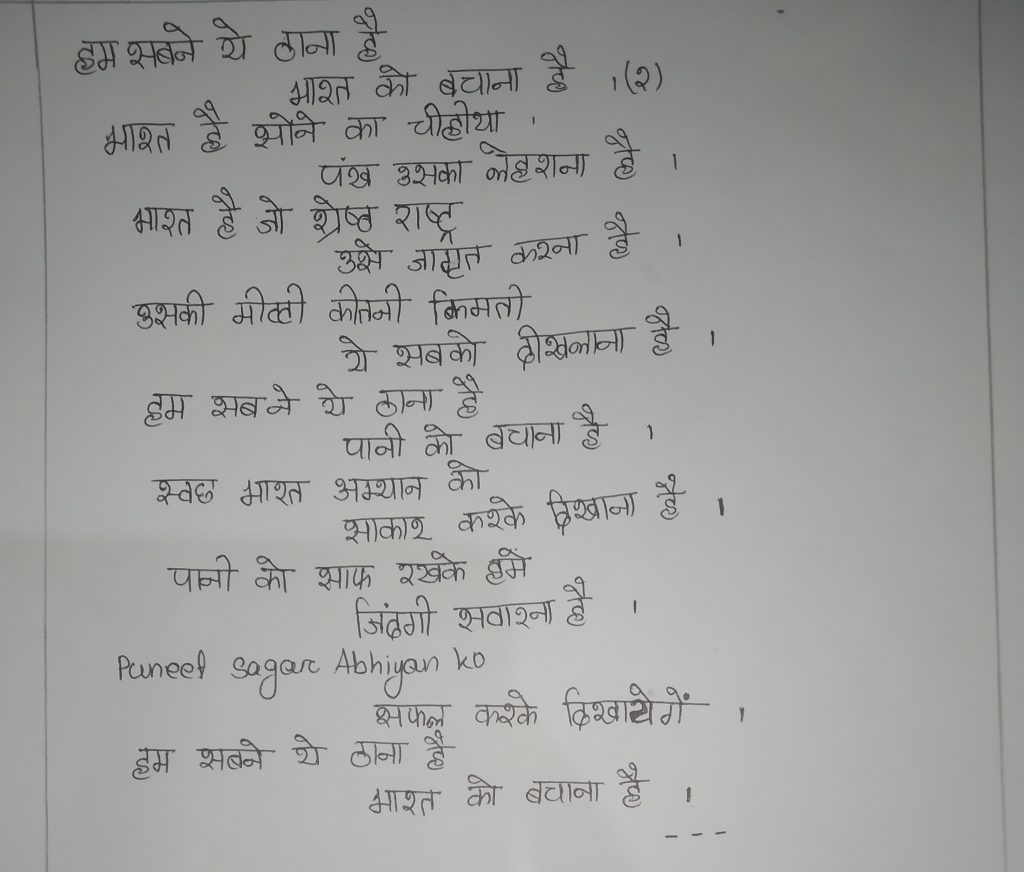 हम सबने ये ठाना है
भारत को बचाना है ।(२)
भारत है सोने का चीडीया ,
पंख उसका लेहराना है ।
भारत है जो श्रेष्ठ राष्ट्र
उसे जागृत करना है ।
उसकी मीट्टी कीतनी किमती
ये सबको दीखलाना है ।
हम सबने ये ठाना है
पानी को बचाना है ।
स्वछ भारत अभ्यान को
साकार करके दिखाना है ।
पानी को साफ रखके हमें
जिंदगी सवारना है ।
Puneet sagar Abhiyan ko
सफल करके दिखायेगें ।
हम सबने ये ठाना है
भारत को बचाना है ।
---